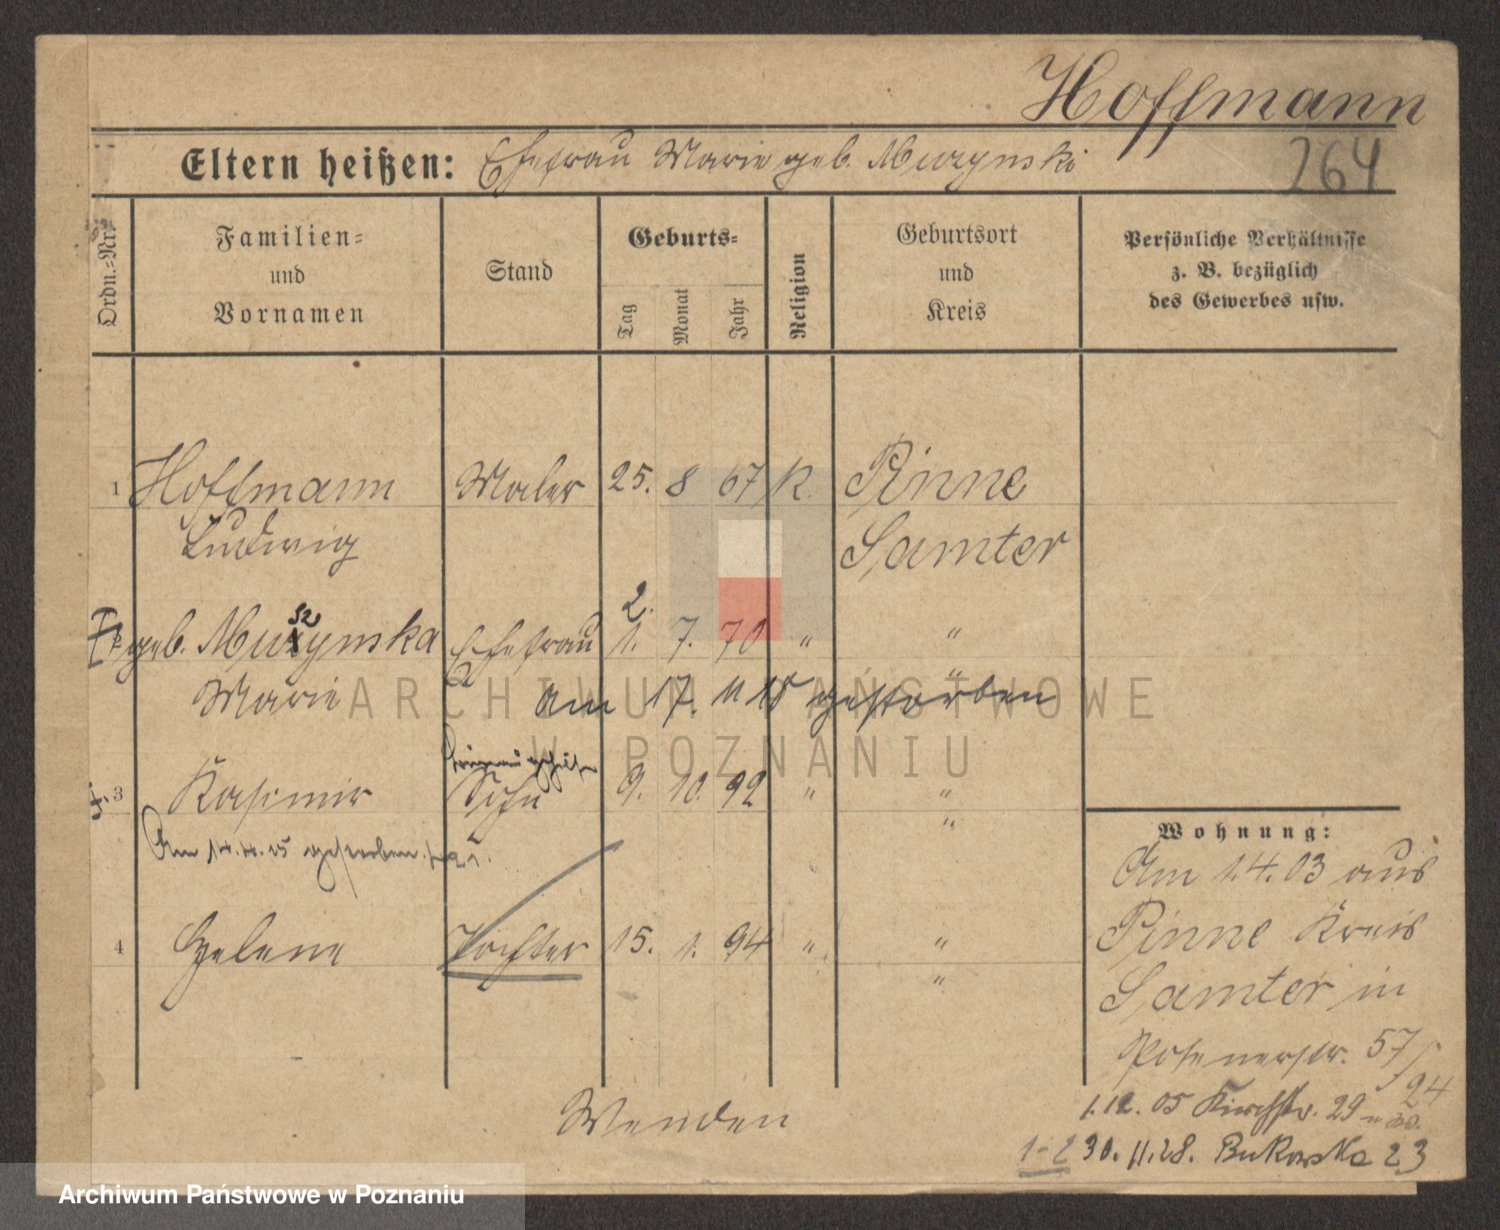 Hoffmann
264
Eltern heißen: Ehefrau Marie geb. Murzynski
Ordn.-Nr.
Familien-
und
Vornamen
Stand
Geburts-
Tag
Monat
Jahr
Religion
Geburtsort
und
Kreis
Persönliche Verhältnisse
z. B. bezüglich
des Gewerbes usw.
1 Hoffmann Maler 25. 8 67 k. Pinne
Ludwig Samter
geb. Murzynska Ehefrau 2. 1. 7. 70 " "
Marie "
am 17. 11 18 gestorben
3 Kasimir Sohn 9. 10. 92 " "
"
Am 14.4.05 gestorben.
4 Helene Tochter 15. 1. 94 " "
"
Wohnung:
Am 1.4.03 aus
Pinne Kreis
Samter in
Posenerstr. 57/94
1.12.05 Kirchstr. 29
1-2 30.11.28. Bukowska 23
Wenden
ARCHIWUM PAŃSTWOWE
W POZNANIU
Archiwum Państwowe w Poznaniu